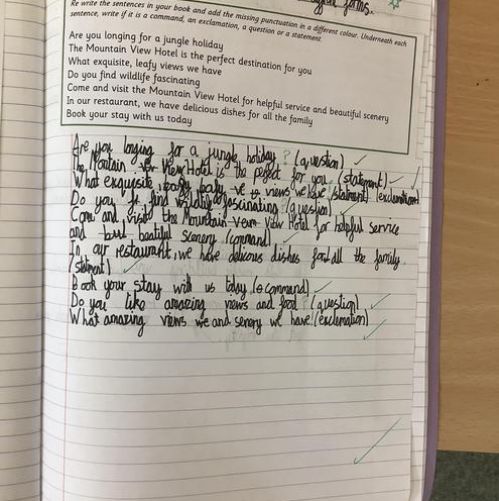 your forms.
Re write the sentences in your book and add the missing punctuation in a different colour. Underneath each
sentence, write if it is a command, an exclamation, a question or a statement
Are you longing for a jungle holiday
The Mountain View Hotel is the perfect destination for you
What exquisite, leafy views we have
Do you find wildlife fascinating
Come and visit the Mountain View Hotel for helpful service and beautiful scenery
In our restaurant, we have delicious dishes for all the family
Book your stay with us today
Are you longing for a jungle holiday? (question)
The Moutain View Hotel is the perfect for you (statement)
What exquisite, leafy views we have (statment) (exclamation)
Do you find wildlife fascinating? (question)
Come and visit the Mountain View Hotel for helpful service
and beatiful scenery (command)
In our restaurant, we have delicous dishes for all the family
(statment)
Book your stay with us today (command)
Do you like amazing views and food? (question)
What amazing views we and senery we have! (exclamation)